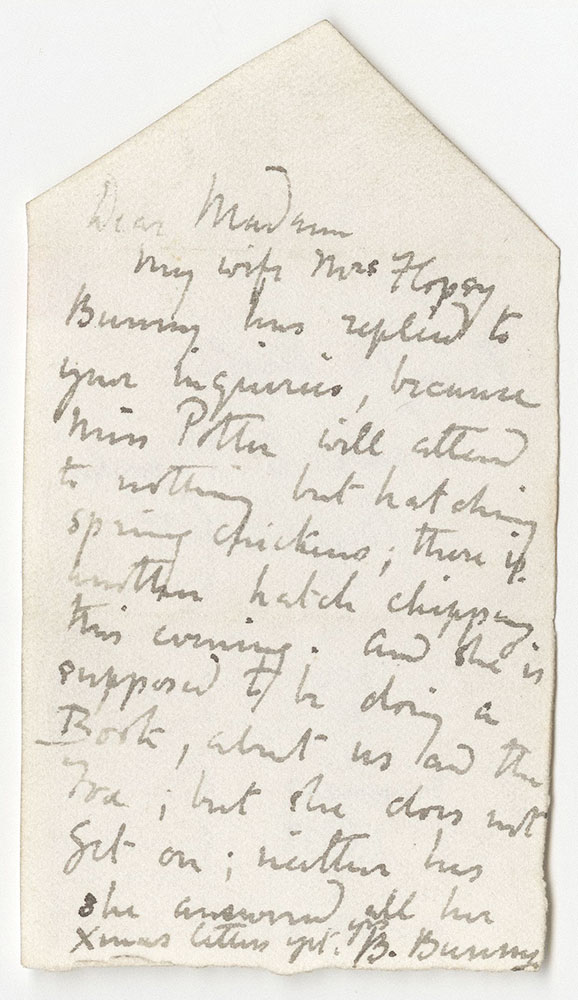 Dear Madam
My wife Mrs Flopsy
Bunny has replied to
your inquiries, because
Miss Potter will attend
to nothing but hatching
spring chickens; there is
another hatch chipping
this evening. And she is
supposed to be doing a
Book, about us and the
Fox; but she does not
get on; neither has
she answered all her
Xmas letters yet. yrs B. Bunny.